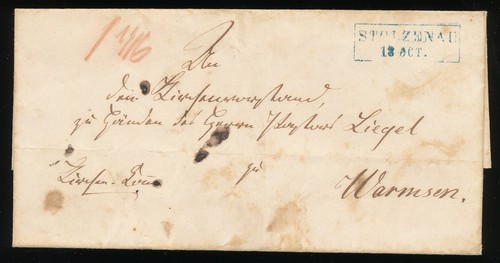 1 1/16
STOLZENAU
13 OCT.
An
den Kirchenvorstand,
zu Händen des Herrn Pastors Liegel
zu
Kirchen-
Warmsen.